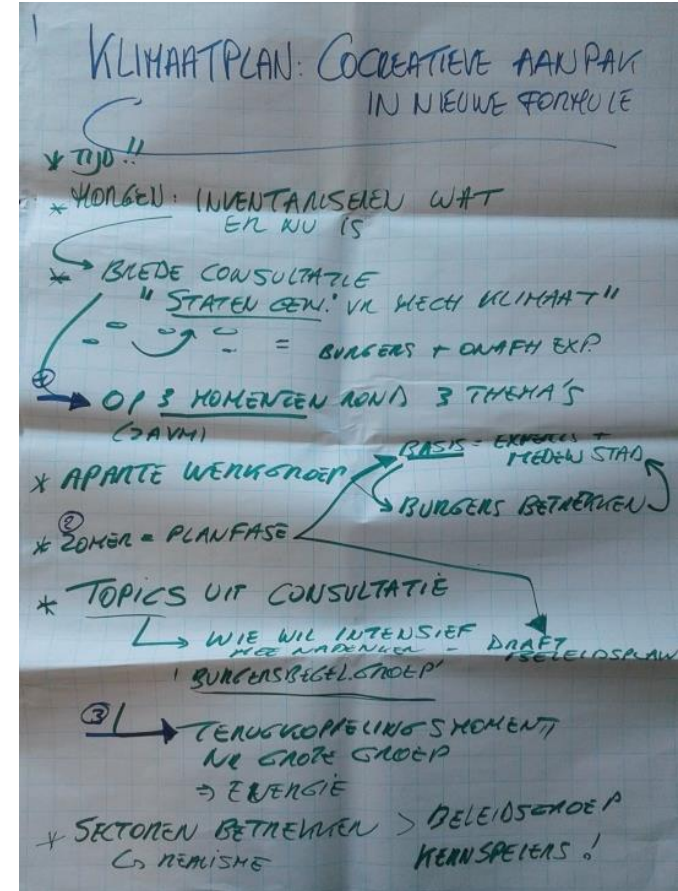 KLIMAATPLAN: COCREATIEVE AANPAK
IN NIEUWE FORMULE
* TIJD!!
* MORGEN: INVENTARISEREN WAT
ER NU IS
* BREDE CONSULTATIE
"STATEN GEN." VR MECH KLIMAAT"
= BURGERS + ONAFH EXP.
① OP 3 MOMENTEN ROND 3 THEMA'S
* APARTE WERKGROEP
BASIS = EXPERTS +
MEDEW STAD
BURGERS BETREKKEN
* ② ZOMER = PLANFASE
* TOPICS UIT CONSULTATIE
WIE WIL INTENSIEF
MEE NADENKEN =
DRAFT
BELEIDSPLAN
'BURGERSBEGEL.GROEP'
③ TERUGKOPPELINGSMOMENT
NR GROTE GROEP
⇒ ENERGIE
* SECTOREN BETREKKEN > BELEIDSGROEP
↳ REALISME
KERNSPELERS!